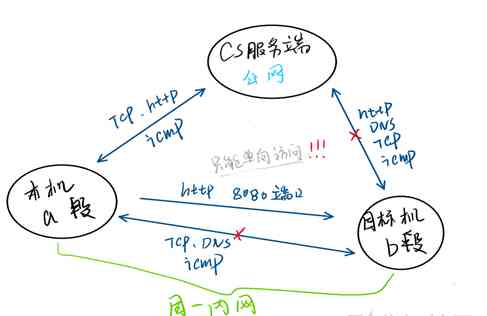 CS服务端
公网
TCP、http
icmp
http
DNS
TCP
icmp
只能单向访问!!!
本机
a段
http 8080端口
目标机
b段
TCP、DNS
icmp
同一内网